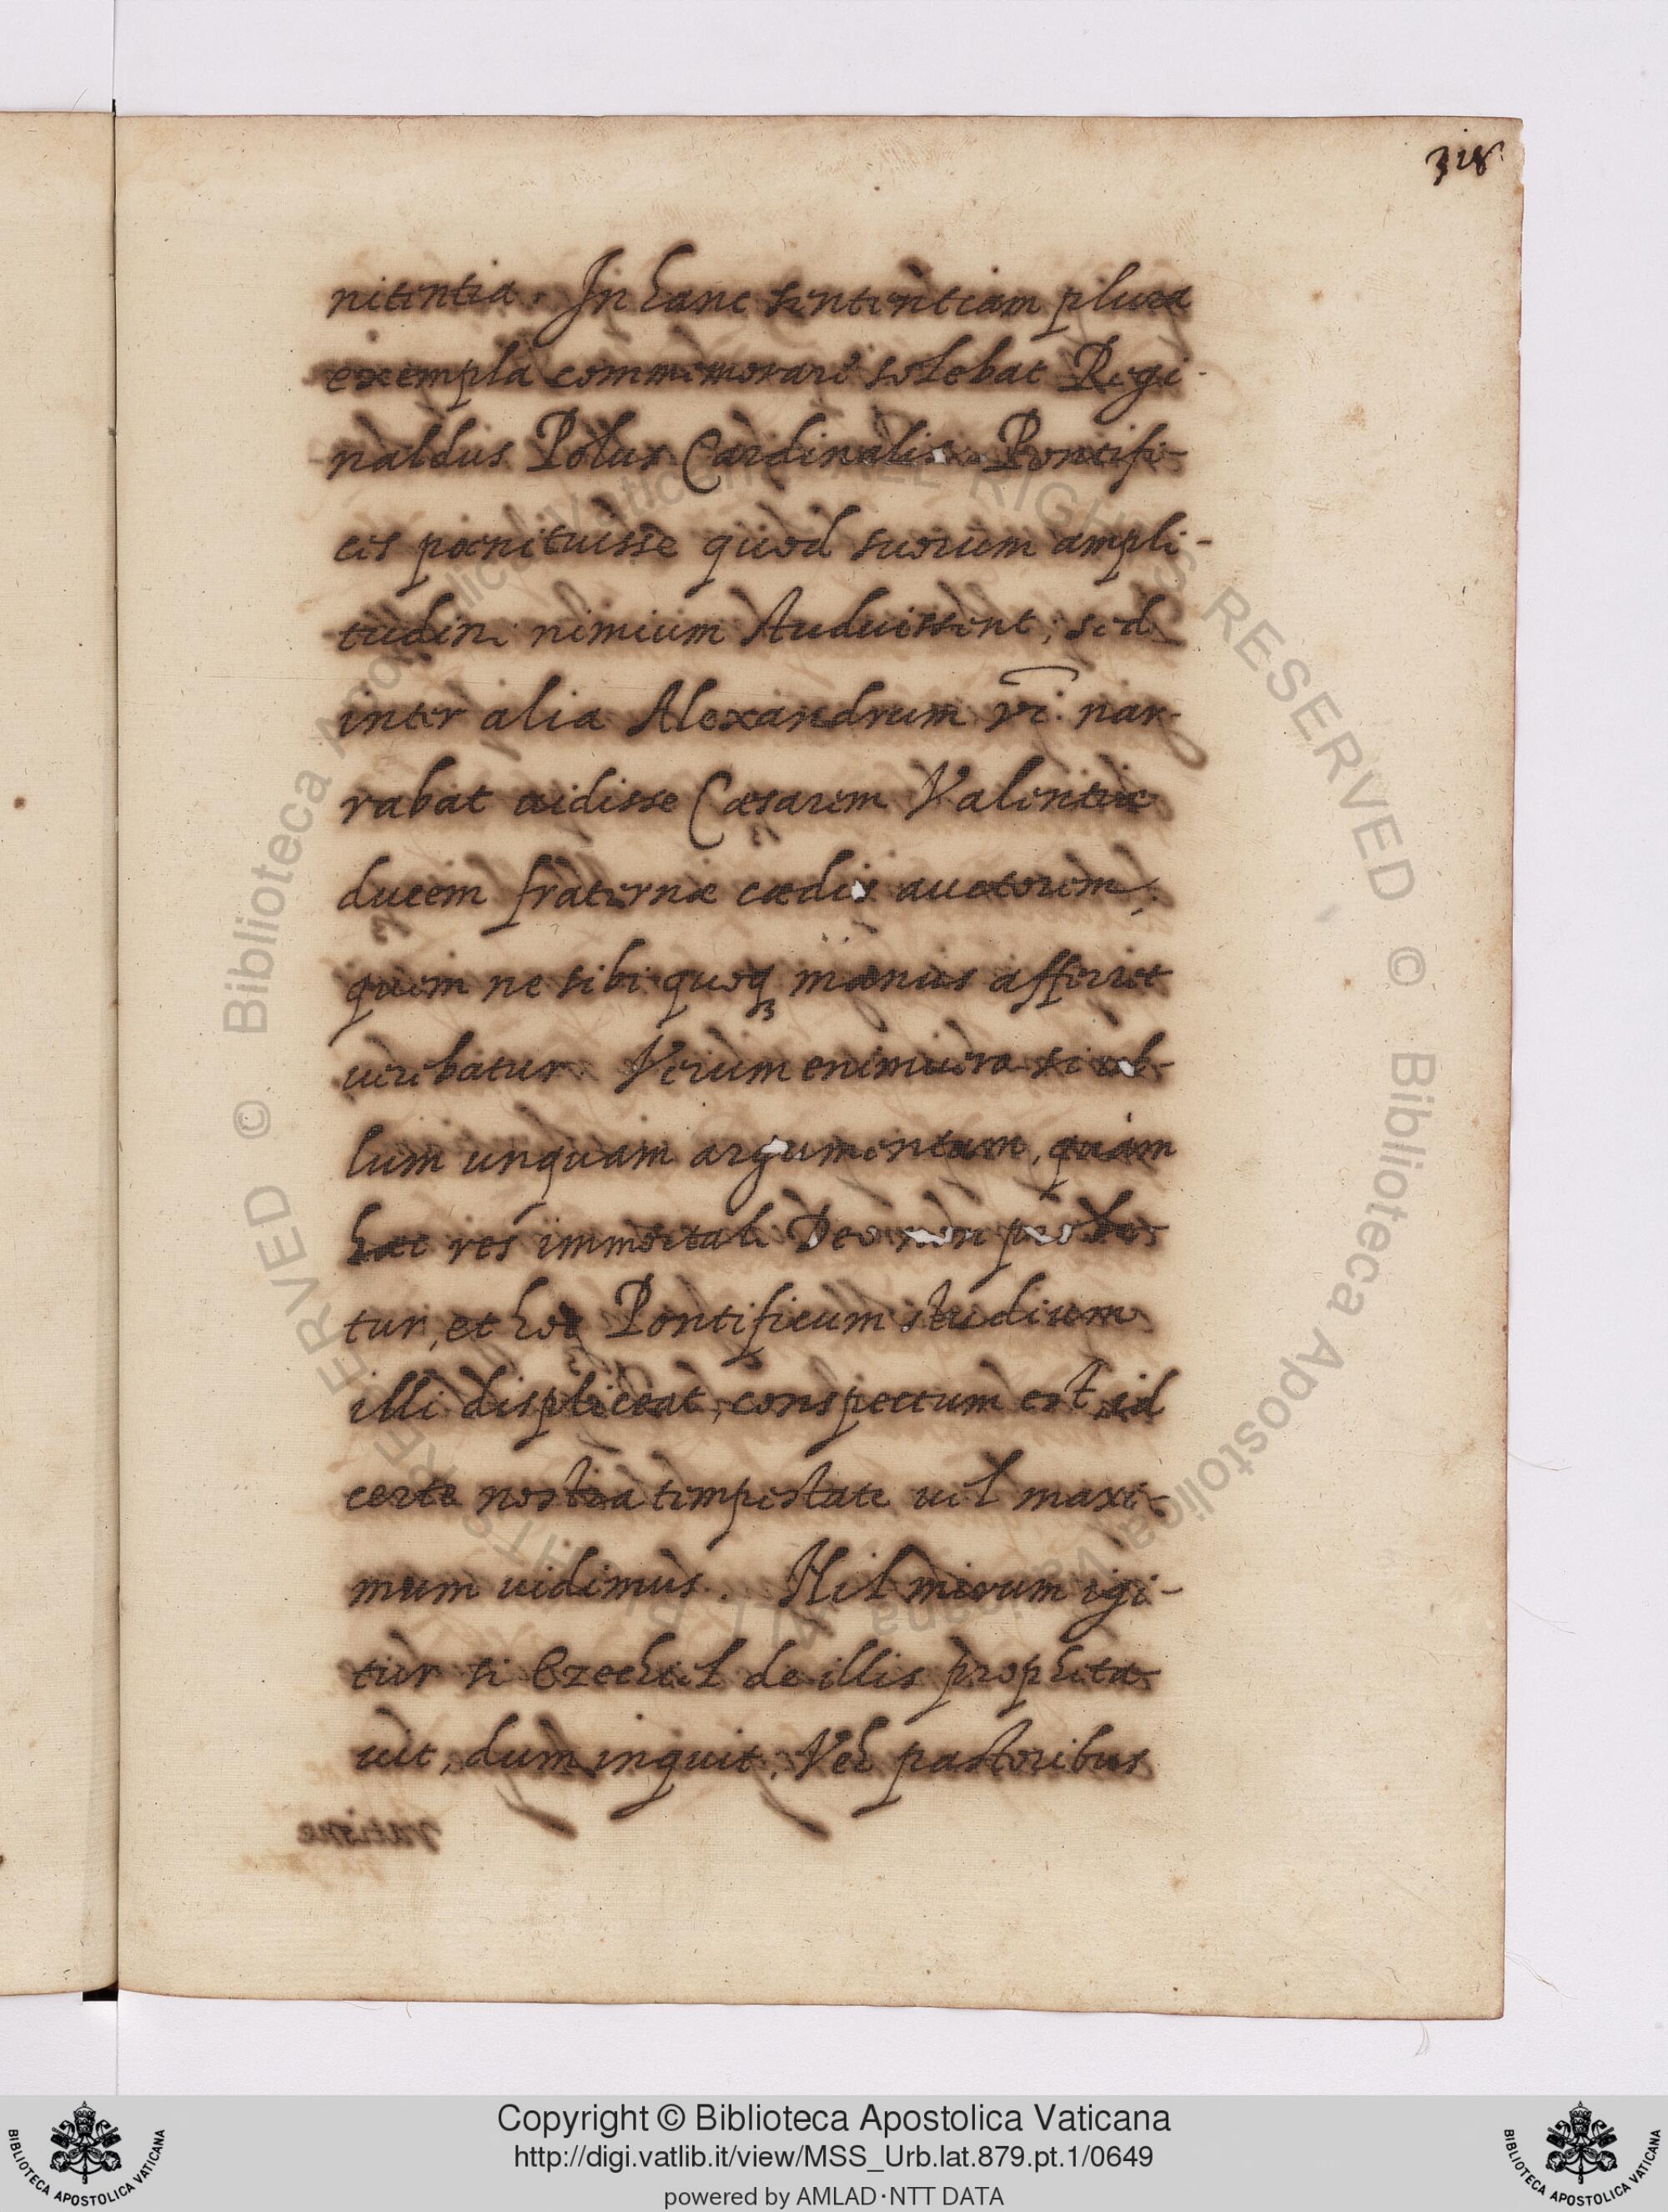 318
nitentia. In hanc sententiam plura
exempla commemorare solebat Regi-
naldus Polus Cardinalis. Pontifi-
ces poenituisse quod suorum ampli-
tudini nimium studuissent, sed
inter alia Alexandrum vi. nar-
rabat uidisse Cæsarem Valentiæ
ducem fraternæ cædis auctorem,
quem ne sibi quoq manus afferret
uerebatur. Verum enimuero si ul-
lum unquam argumentum, quàm
hæc res immortali Deo non probe-
tur, et hoc Pontificum studium
illi displiceat, conspectum est, id
certe nostra tempestate uel maxi-
mum uidimus. Nil mirum igi-
tur si Ezechiel de illis propheta-
uit, dum inquit, Veh pastoribus
© Biblioteca Apostolica Vaticana ALL RIGHTS RESERVED
© Biblioteca Apostolica Vaticana ALL RIGHTS RESERVED
Copyright © Biblioteca Apostolica Vaticana
http://digi.vatlib.it/view/MSS_Urb.lat.879.pt.1/0649
powered by AMLAD·NTT DATA
BIBLIOTECA APOSTOLICA VATICANA
BIBLIOTECA APOSTOLICA VATICANA